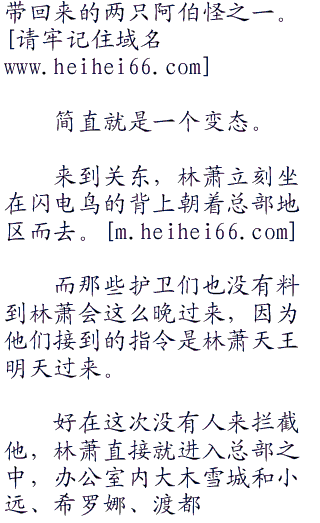 带回来的两只阿伯怪之一。
[请牢记住域名
www.heihei66.com]
简直就是一个变态。
来到关东，林萧立刻坐
在闪电鸟的背上朝着总部地
区而去。[m.heihei66.com]
而那些护卫们也没有料
到林萧会这么晚过来，因为
他们接到的指令是林萧天王
明天过来。
好在这次没有人来拦截
他，林萧直接就进入总部之
中，办公室内大木雪城和小
远、希罗娜、渡都